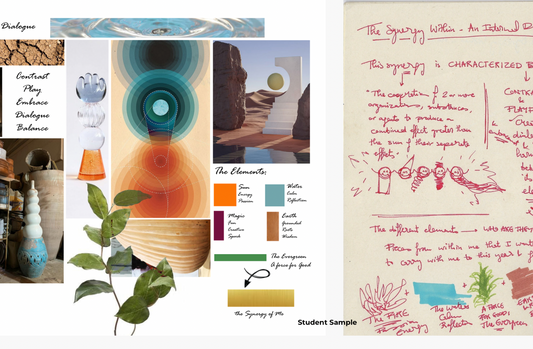 Dialogue
Contrast
Play
Embrace
Dialogue
Balance
The Elements:
Sun
Energy
Passion
Water
Calm
Reflection
Magic
Fun
Creative
Spark
Earth
Grounded
Roots
Wisdom
The Evergreen
A force for Good
the Synergy of Me
Student Sample
The Synergy Within - An Internal
This synergy is CHARACTERIZED B
"The cooperation of 2 or more
organizations, substances,
or agents to produce a
combined effect greater than
the sum of their separate
effects."
CONTRA
&
PLAYF
The different elements → WHO ARE THEY
Pieces from within me that I want
to carry with me to this year &
The FIRE
Energy
The Waters
Calm
Reflection
A FORCE
FOR GOOD:
The EVERGREEN